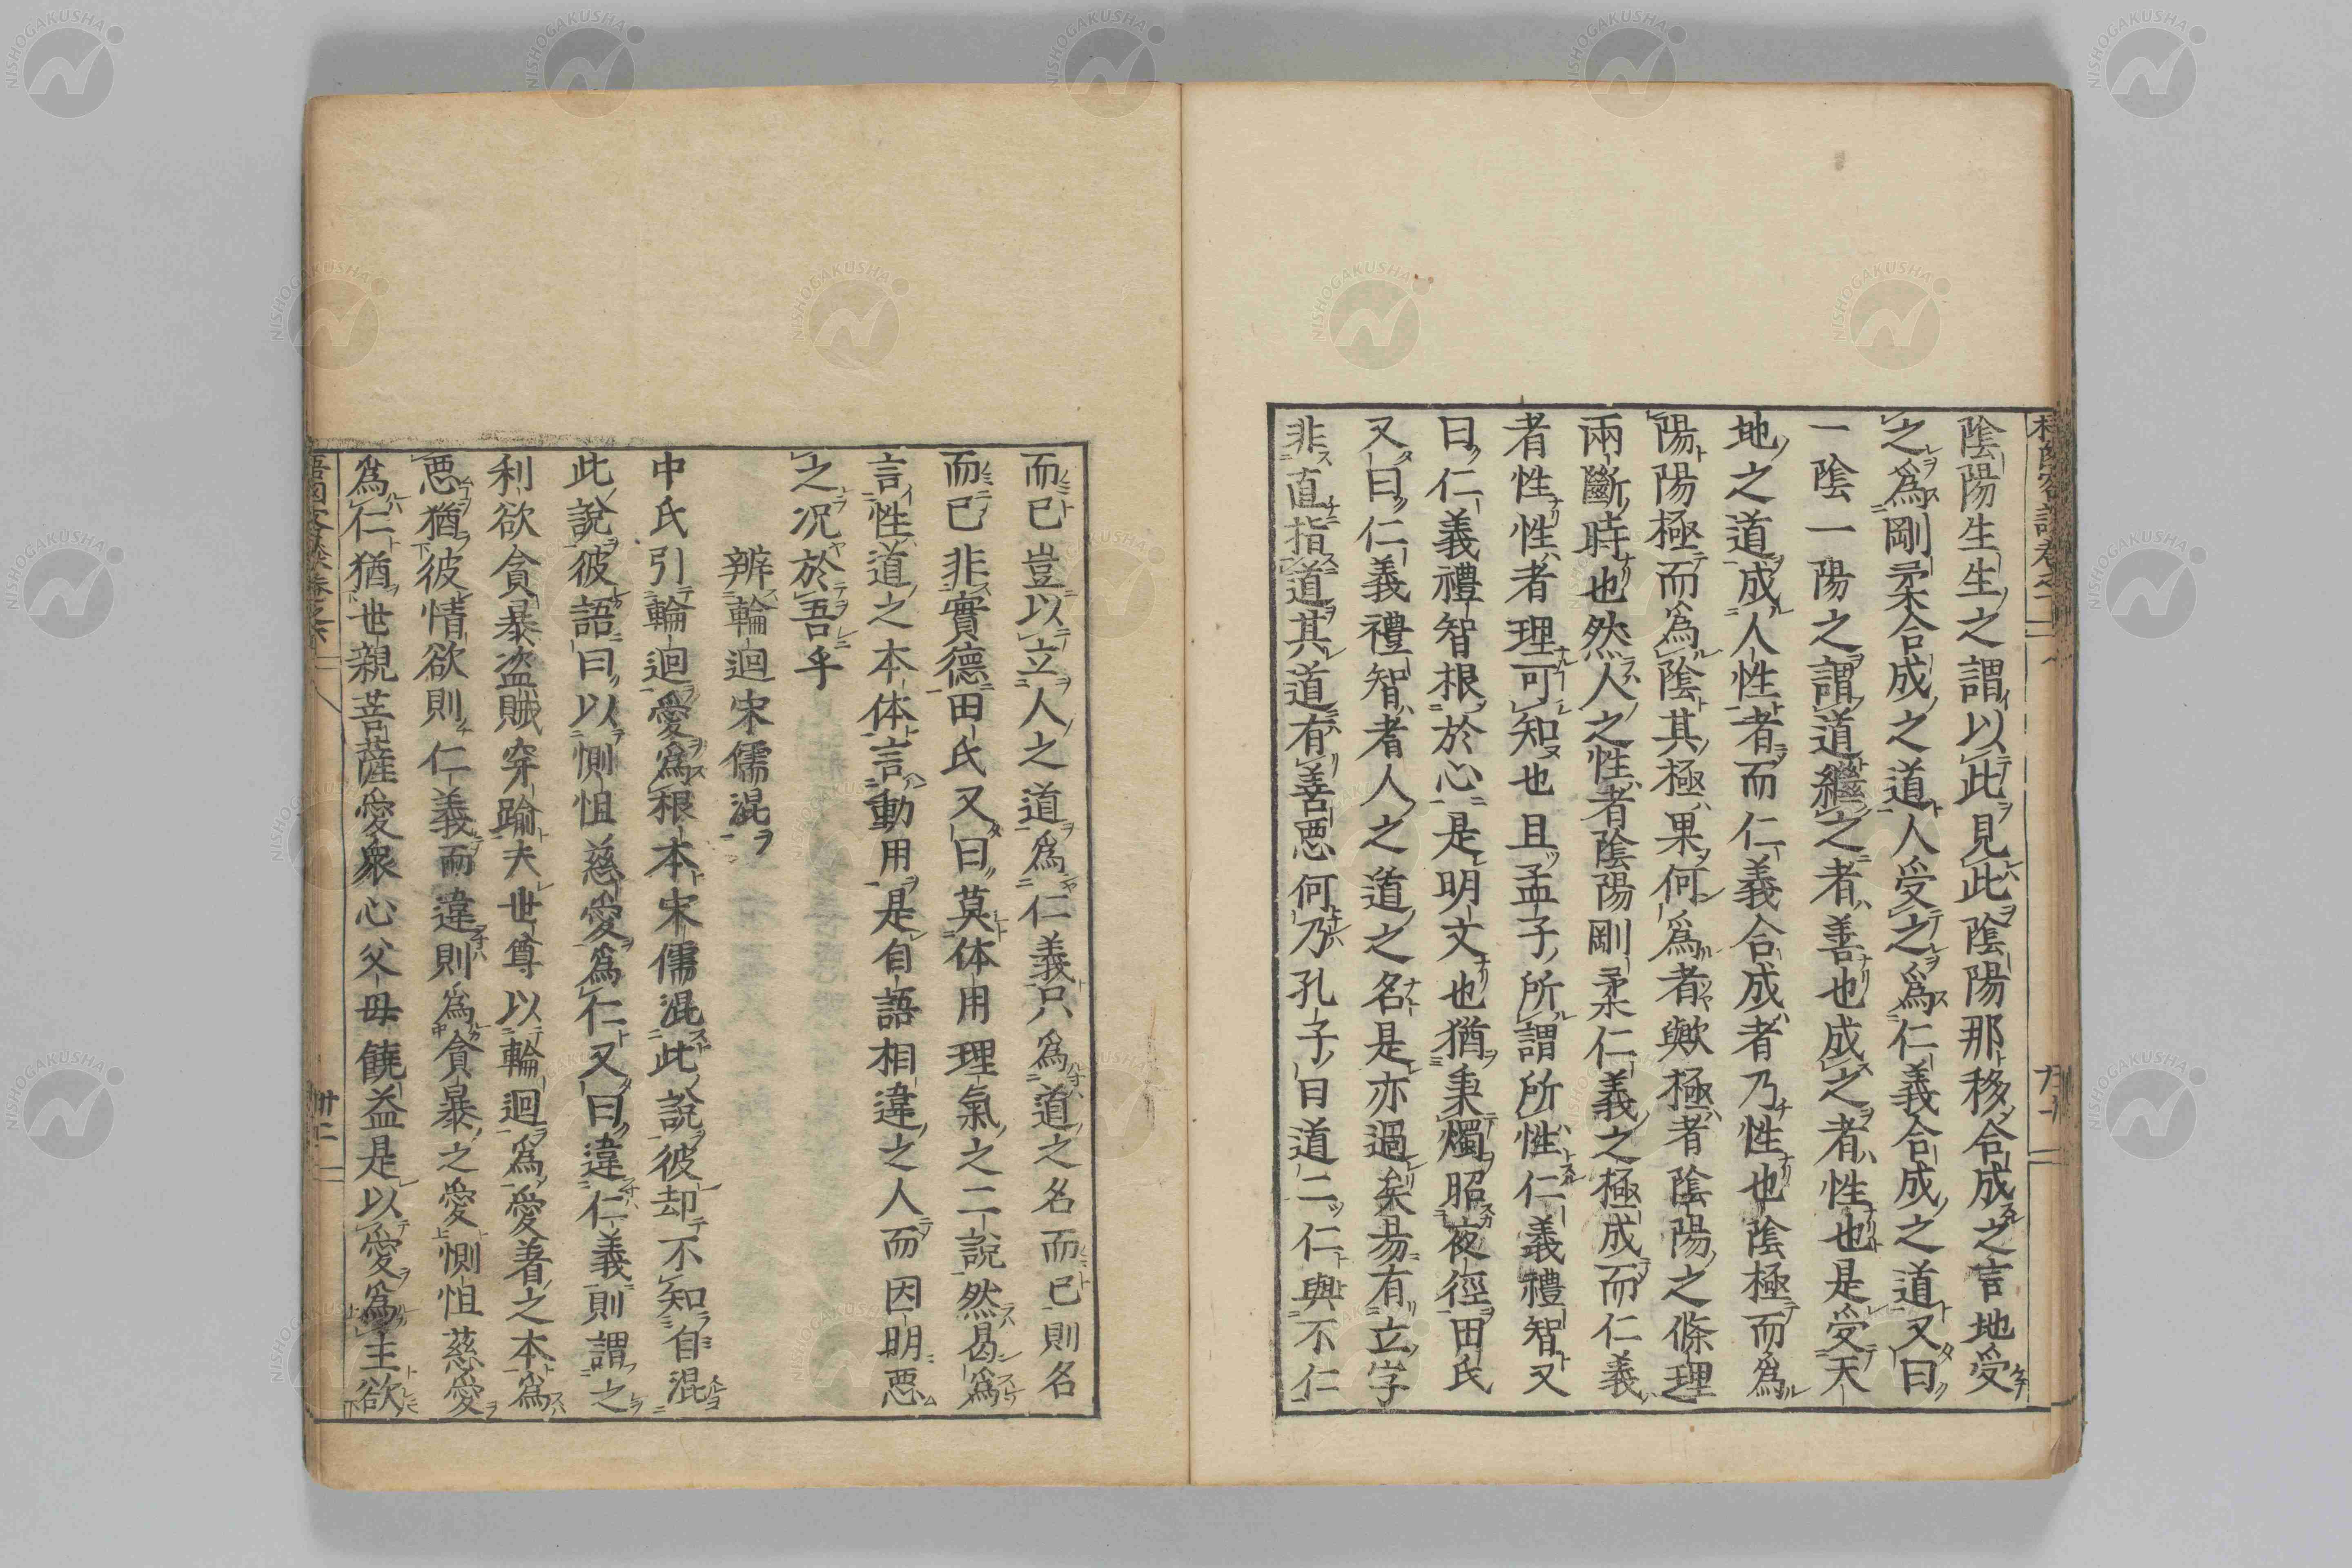 陰陽生生之謂以此見此陰陽那移合成之言地受
之爲剛柔合成之道人受之爲仁義合成之道又曰
一陰一陽之謂道繼之者善也成之者性也是受天
地之道成人性者而仁義合成者乃性也陰極而爲
陽陽極而爲陰其極果何爲者歟極者陰陽之條理
兩斷時也然人之性者陰陽剛柔仁義之極成而仁義
者性性者理可知也且孟子所謂所性仁義禮智又
曰仁義禮智根於心是明文也猶秉燭昭夜徑田氏
又曰仁義禮智者人之道之名是亦過矣易有立字
非直指道其道有善惡何乃孔子曰道二仁與不仁
而已豈以立人之道爲仁義只爲道之名而已則名
而已非實德田氏又曰莫体用理氣之二說然曷爲
言性道之本体言動用是自語相違之人而因明惡
之况於吾乎
辨輪迴宋儒混
中氏引輪迴愛爲根本宋儒混此說彼却不知自混
此說彼語曰以惻怛慈愛爲仁又曰違仁義則謂之
利欲貪暴盗賊穿踰夫世尊以輪迴爲愛着之本爲
惡猶彼情欲則仁義而違則爲貪暴之愛惻怛慈愛
爲仁猶世親菩薩愛衆心父母饒益是以愛爲主欲
卅二
NISHOGAKUSHA